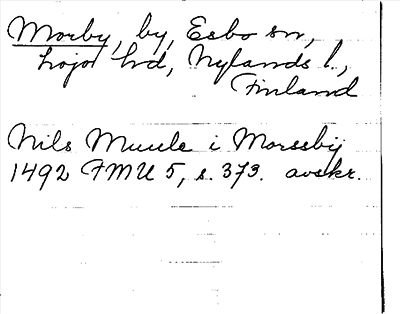 Morby, by, Esbo sn,
Lojo hd, Nylands l.,
Finland
Nils Muule i Morssby
1492 FMU 5, s. 373. avskr.